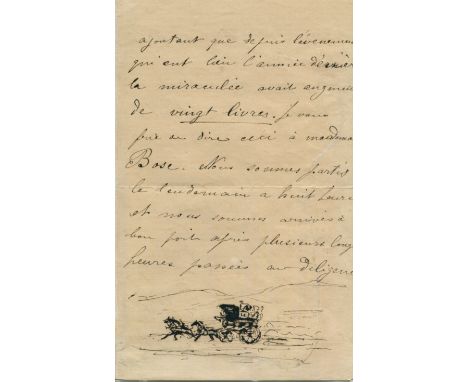 ajoutant que depuis l'évènement
qui eut lieu l'année dernière
la miraculée avait augmenté
de vingt livres. Je vous
prie de dire ceci à madame
Bose. Nous sommes partis
le lendemain à huit heures
et nous sommes arrivés à
bon port après plusieurs long
heures passées en diligence